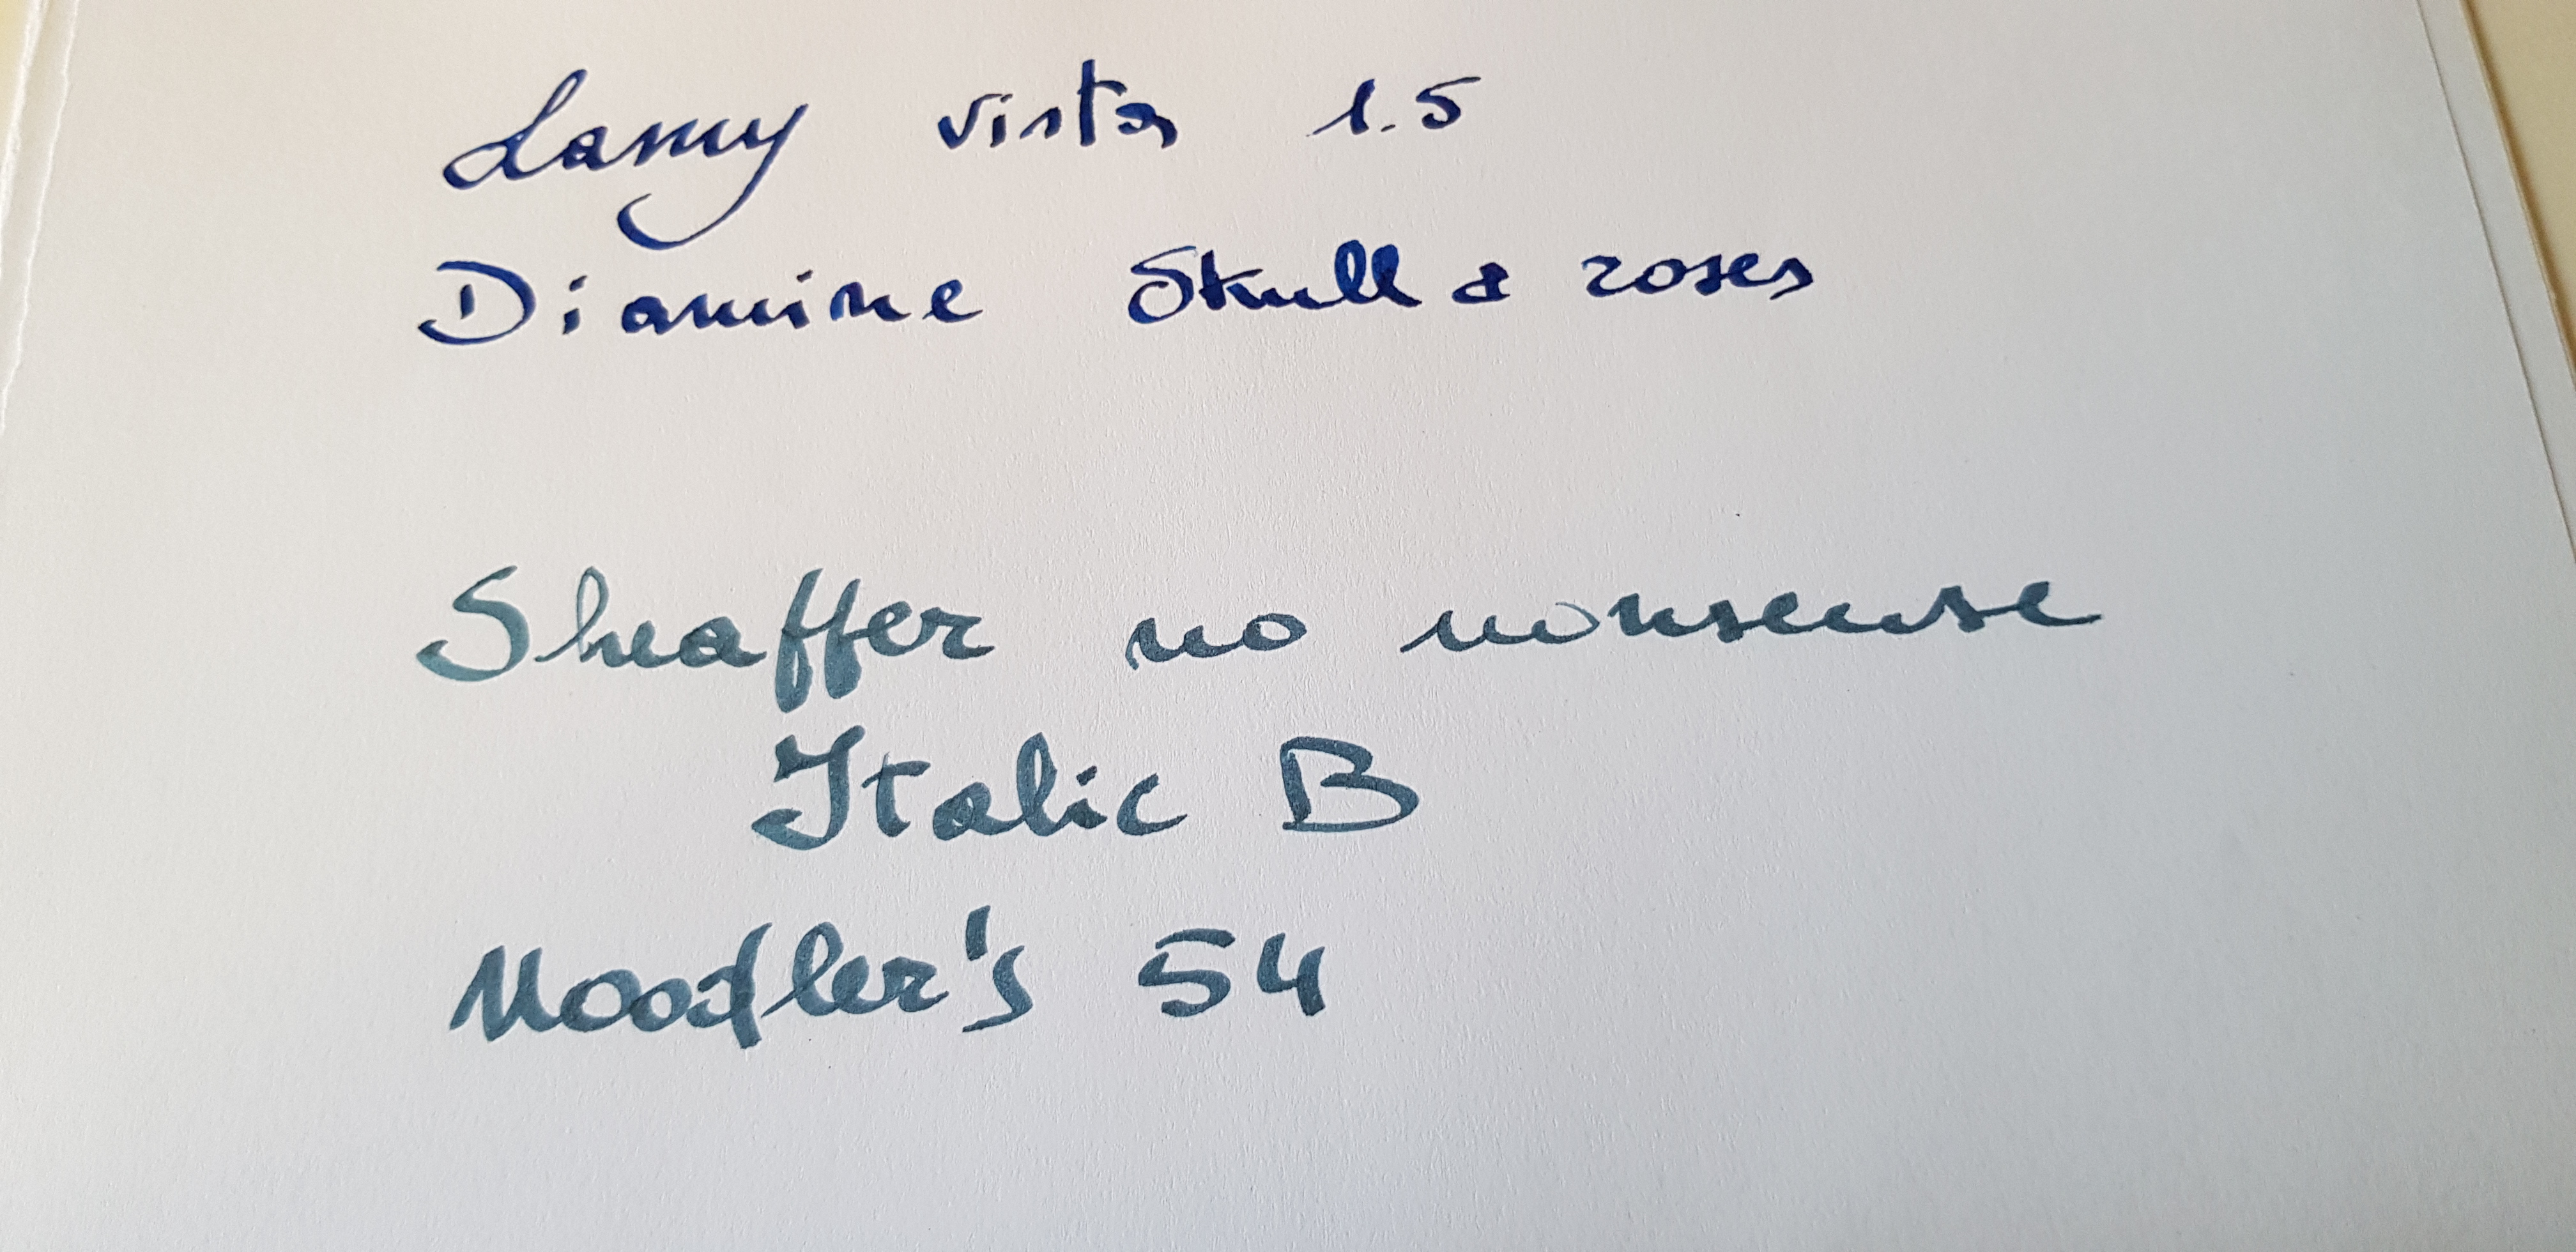 Lamy vista 1.5
Diamine Skull & roses
Sheaffer no nonsense
Italic B
Noodler's 54